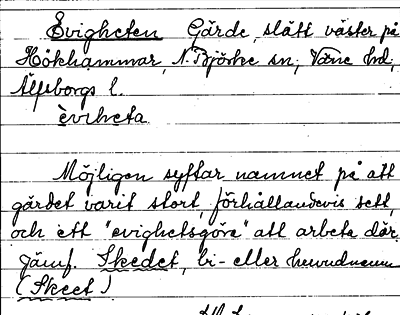 Evigheten Gärde, slätt väster på
Hökhammar, N. Björke sn, Väne hd,
Älfsborgs l.
èviheta
Möjligen syftar namnet på att
gärdet varit stort, förhållandevis sett,
och ett "evighetsgöra" att arbeta där.
Jämf. Skedet, bi- eller huvudnamn
(Skeet)